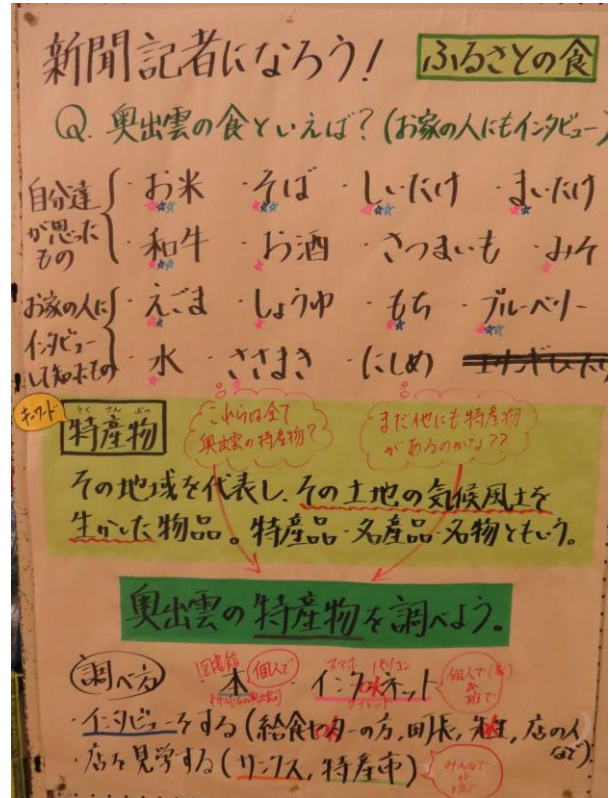 新聞記者になろう！ ふるさとの食
Q. 奥出雲の食といえば？(お家の人にもインタビュー)
自分達が思ったもの
・お米 ・そば ・しいたけ ・まいたけ
・和牛 ・お酒 ・さつまいも ・みそ
お家の人にインタビューして知ったもの
・えごま ・しょうゆ ・もち ・ブルーベリー
・水 ・ささまき ・にしめ
キーワード
とくさんぶつ
特産物
これらは全て
奥出雲の特産物？
まだ他にも特産物
があるのかな??
その地域を代表し、その土地の気候風土を
生かした物品。特産品・名産品・名物ともいう。
奥出雲の特産物を調べよう。
調べ方
図書館 個人で スマホ パソコン
本 インターネット
タブレット
個人で
・インタビューをする(給食センターの方, 町長, 先生, 店の人など)
・店を見学する(サンクス, 特産市)
みんなで